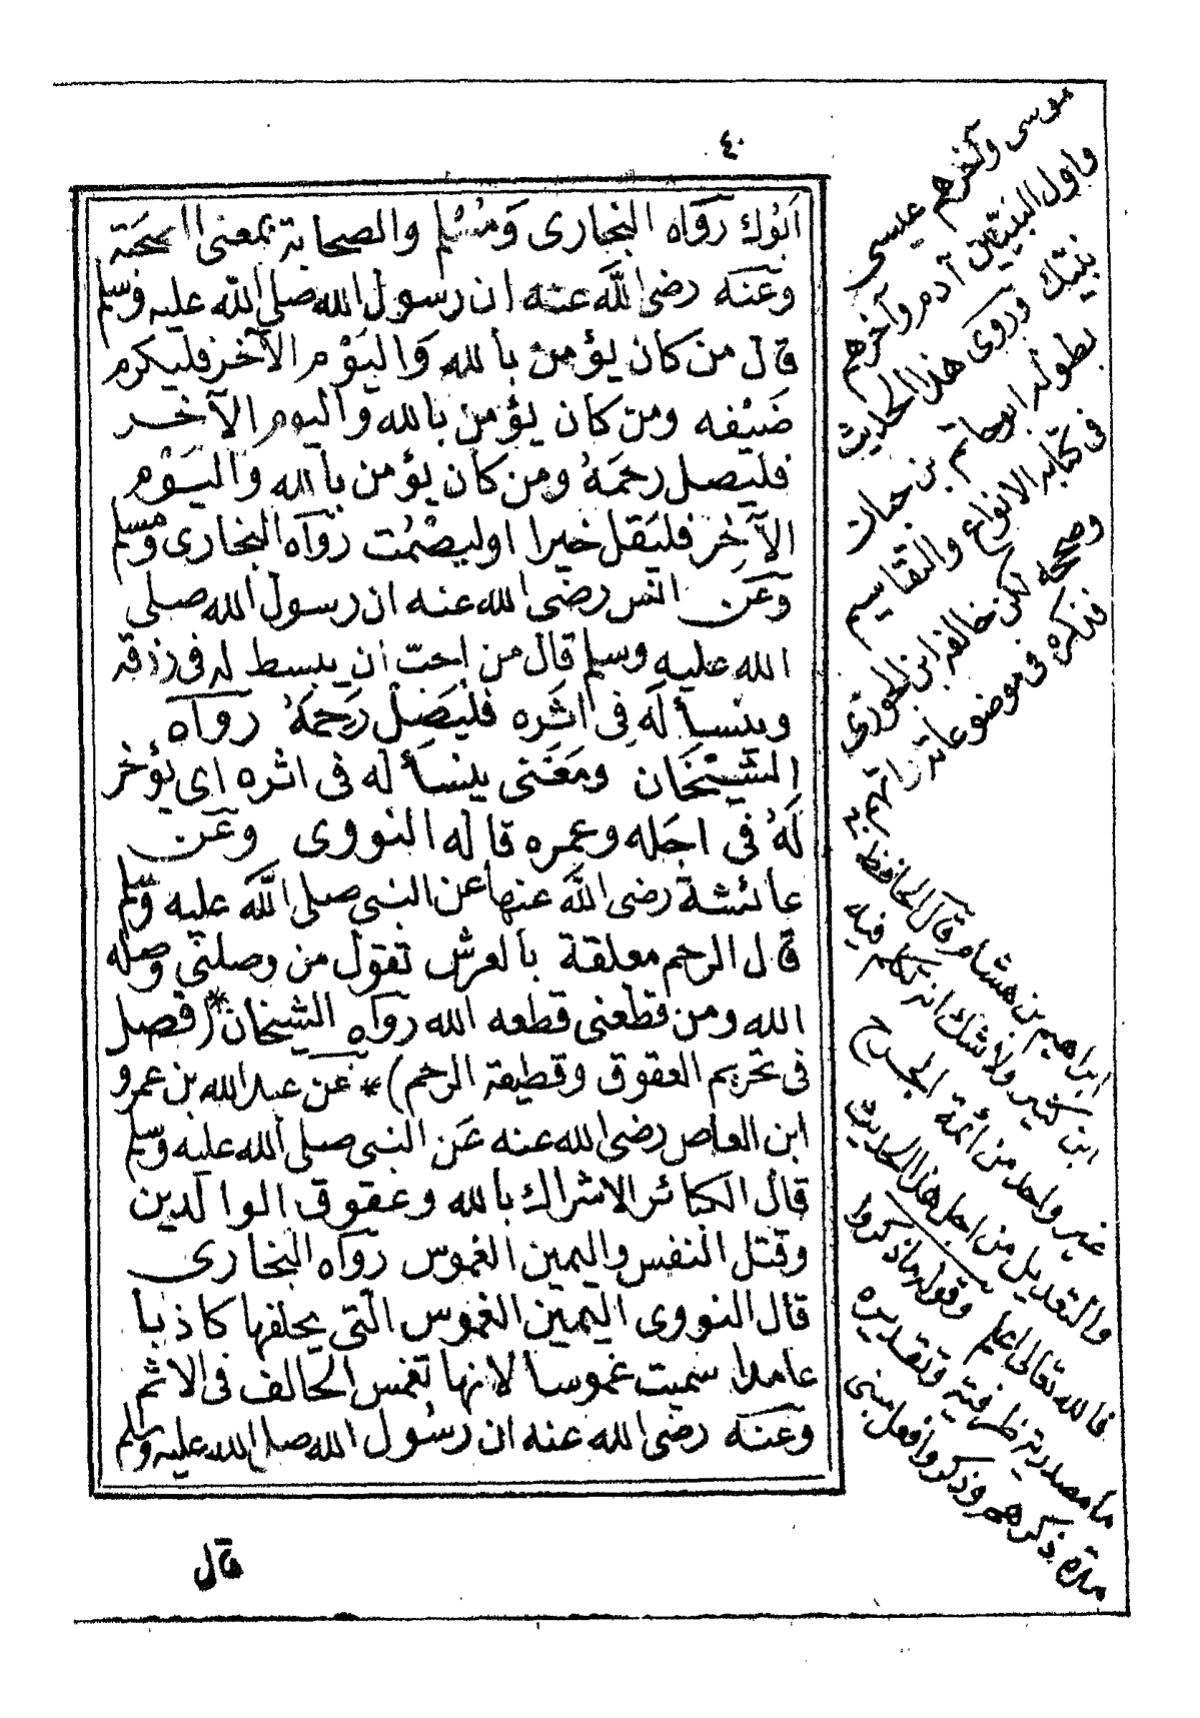 ٤٠
اَبُوك رَوَاه البخارى وَمُسْلم والصحابة بمعنى الصحبة
وعَنه رضى اللّه عنه ان رسول الله صلى الله عليه وسلم
قال من كان يؤمن بالله وَاليَوْم الآخر فليكرم
ضَيْفه ومن كان يؤمن بالله واليوم الآخر
فليصل رحمَهُ ومن كان يؤمن بالله واليَوْم
الآخر فليَقل خيرا اوليصْمُت رَوَاه البخارى ومسلم
وعَن انس رضى الله عنه ان رسول الله صلى
الله عليه وسلم قال من احبّ ان يبسط له فى رزقه
وينسأ لَه فى اثَره فليَصِلْ رَحِمَهُ رَوَاه
الشيْخَان ومَعَنى ينسَأ له فى اثره اى يؤخر
لَهُ فى اجَله وعمره قاله النووى وعَن
عائشة رضى اللّه عنها عن النبى صلى اللّه عليه وسلم
قال الرحم معلقة بالعرش تقول من وصلنى وصله
الله ومن قطعنى قطعه الله رَوَاه الشيخان * (فصل
فى تحريم العقوق وقطيعة الرحم) * عَن عبد الله بن عمرو
ابن العاص رضى الله عنه عَن النبى صلى الله عليه وسلم
قال الكبائر الاشراك بالله وعقوق الوالدين
وقتل النفس واليمين الغموس رَوَاه البخارى
قال النووى اليمين الغموس التى يحلفها كاذبا
عامدا سميت غموسا لانها تغمس الحالف فى الاثم
وعَنَه رضى الله عنه ان رسُول الله صلى الله عليه وسلم
قال
موسى وآخرهم عيسى
واول النبيّين آدم وآخرهم
نبيّك وروى هذا الحديث
بطوله ابوحاتم بن حبان
فى كتابه الانواع والتقاسيم
وصححه لكن خالفه ابن الجوزى
فذكره فى موضوعاته
ابراهيم بن هشام قال الحافظ
ابن كثير ولا شك انه تكلم فيه
غير واحد من ائمة الجرح
والتعديل من اجل هذا الحديث
فالله تعالى اعلم وقوله ما ذكروا
ما مصدرية ظرفية وتقديره
مدة ذكرهم وذكروا فعل مبنى